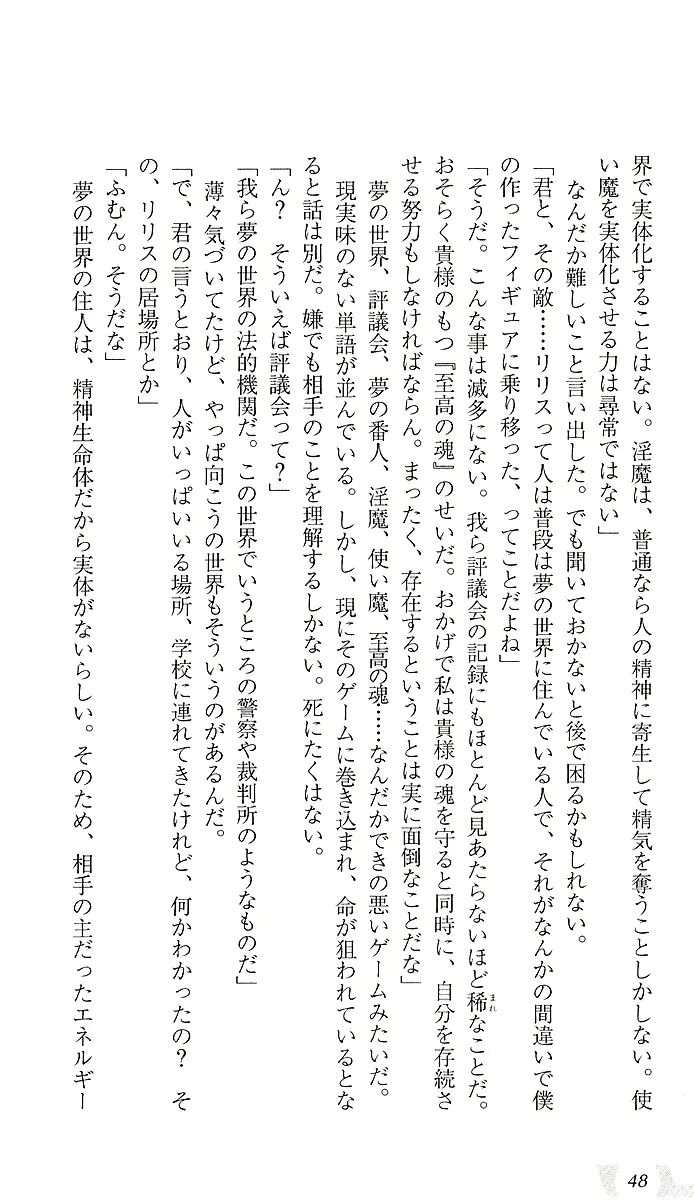 界で実体化することはない。淫魔は、普通なら人の精神に寄生して精気を奪うことしかしない。使
い魔を実体化させる力は尋常ではない」
なんだか難しいこと言い出した。でも聞いておかないと後で困るかもしれない。
「君と、その敵……リリスって人は普段は夢の世界に住んでいる人で、それがなんかの間違いで僕
の作ったフィギュアに乗り移った、ってことだよね」
「そうだ。こんな事は滅多にない。我ら評議会の記録にもほとんど見あたらないほど稀なことだ。
まれ
おそらく貴様のもつ『至高の魂』のせいだ。おかげで私は貴様の魂を守ると同時に、自分を存続さ
せる努力もしなければならん。まったく、存在するということは実に面倒なことだな」
夢の世界、評議会、夢の番人、淫魔、使い魔、至高の魂……なんだかできの悪いゲームみたいだ。
現実味のない単語が並んでいる。しかし、現にそのゲームに巻き込まれ、命が狙われているとな
ると話は別だ。嫌でも相手のことを理解するしかない。死にたくはない。
「ん？　そういえば評議会って？」
「我ら夢の世界の法的機関だ。この世界でいうところの警察や裁判所のようなものだ」
薄々気づいてたけど、やっぱ向こうの世界もそういうのがあるんだ。
「で、君の言うとおり、人がいっぱいいる場所、学校に連れてきたけれど、何かわかったの？　そ
の、リリスの居場所とか」
「ふむん。そうだな」
夢の世界の住人は、精神生命体だから実体がないらしい。そのため、相手の主だったエネルギー
48